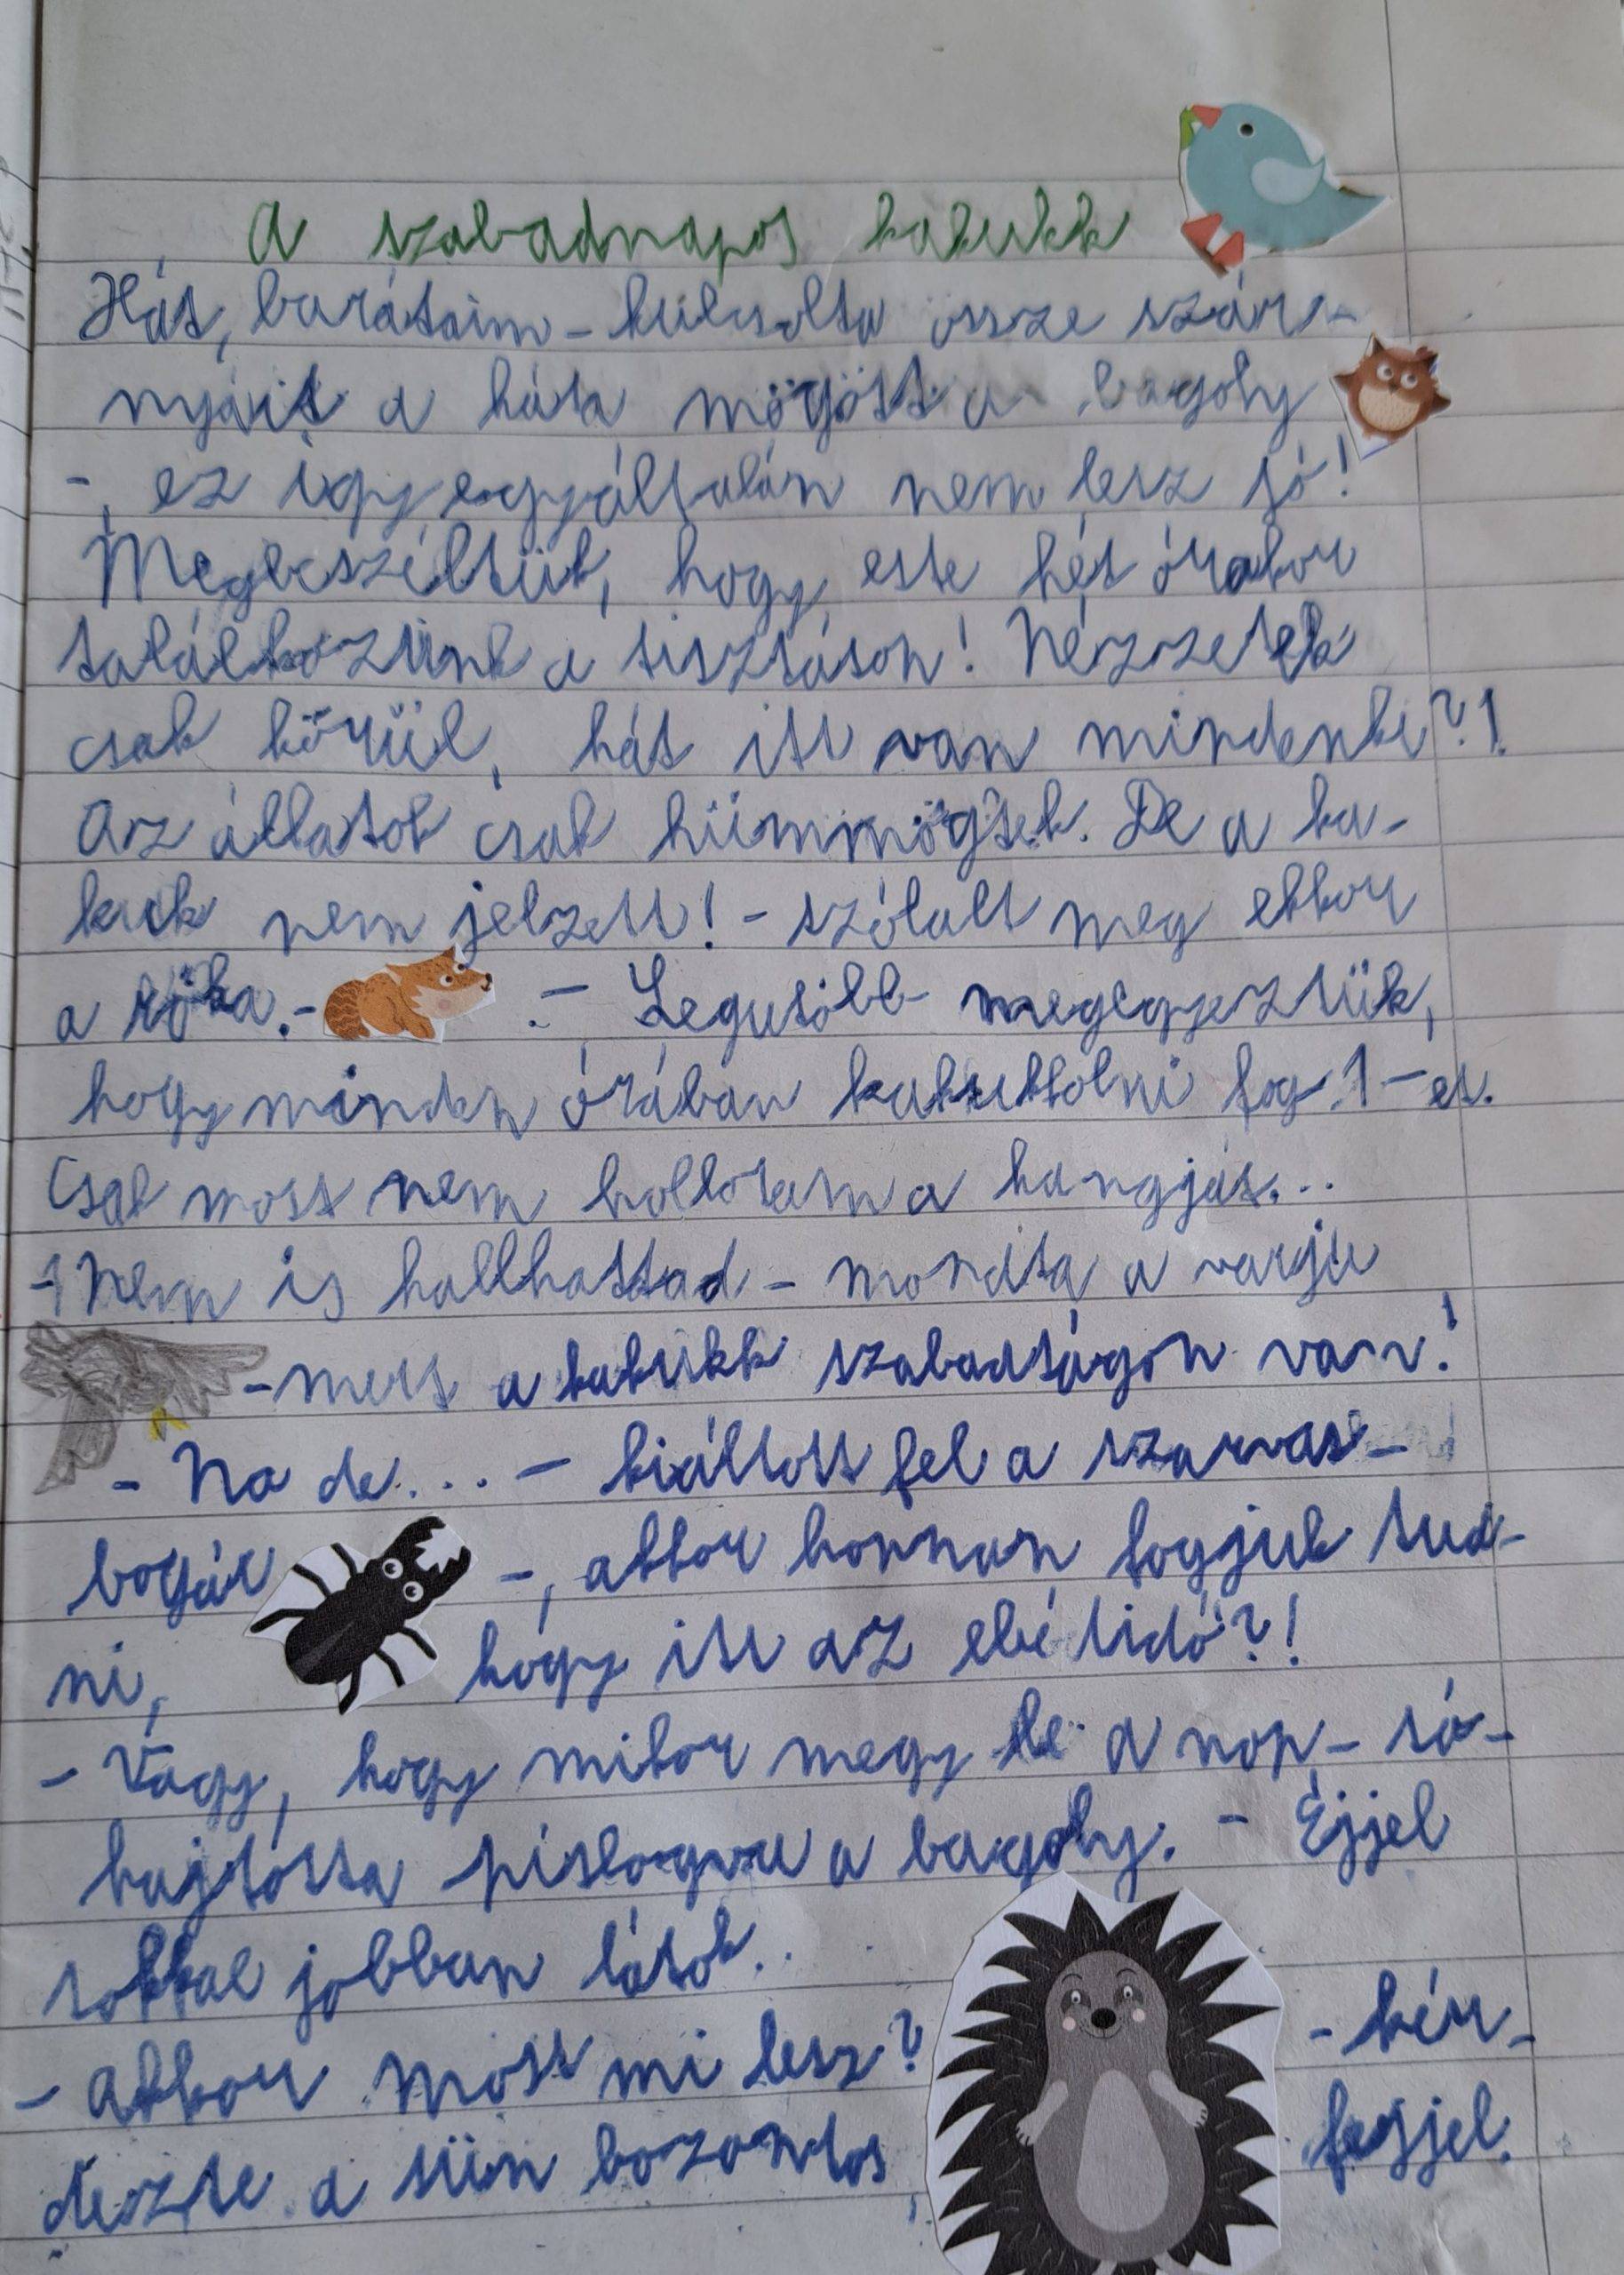 A szabadnapos kakukk
Hát, barátaim – kulcsolta össze szár-
nyait a háta mögött a bagoly
–, ez így egyáltalán nem lesz jó!
Megbeszéltük, hogy este hét órakor
találkozünk a tisztáson! Nézzetek
csak körül, hát itt van mindenki?!
Az állatok csak hümmögtek. De a ka-
kukk nem jelzett! – szólalt meg ekkor
a róka. – . – Legutóbb megegyeztük,
hogy minden órában kakukkolni fog 1-et.
Csak most nem hallotam a hangját...
– Nem is hallhattad – mondta a varjú
– mert a kakukk szabadságon van!
– Na de... – kiáltott fel a szarvas-
bogár –, akkor honnan fogjuk tud-
ni, hogy itt az ebédidő?!
– Vagy, hogy mikor megy le a nap – só-
hajtotta pislogva a bagoly. – Éjjel
sokkal jobban látok..
– Akkor most mi lesz? – kér-
dezte a sün bozontos fejjel.